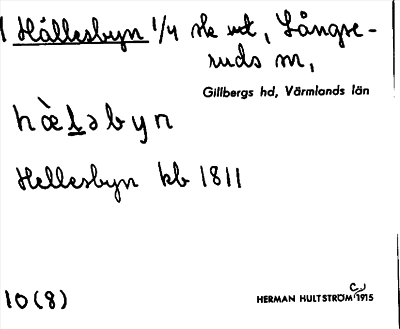 1 Hällesbyn 1/4 sk nt, Långse-
ruds sn,
Gillbergs hd, Värmlands län
hæ̀ləbyn
Hellesbyn kb 1811
10(8)
HERMAN HULTSTRÖM 1915